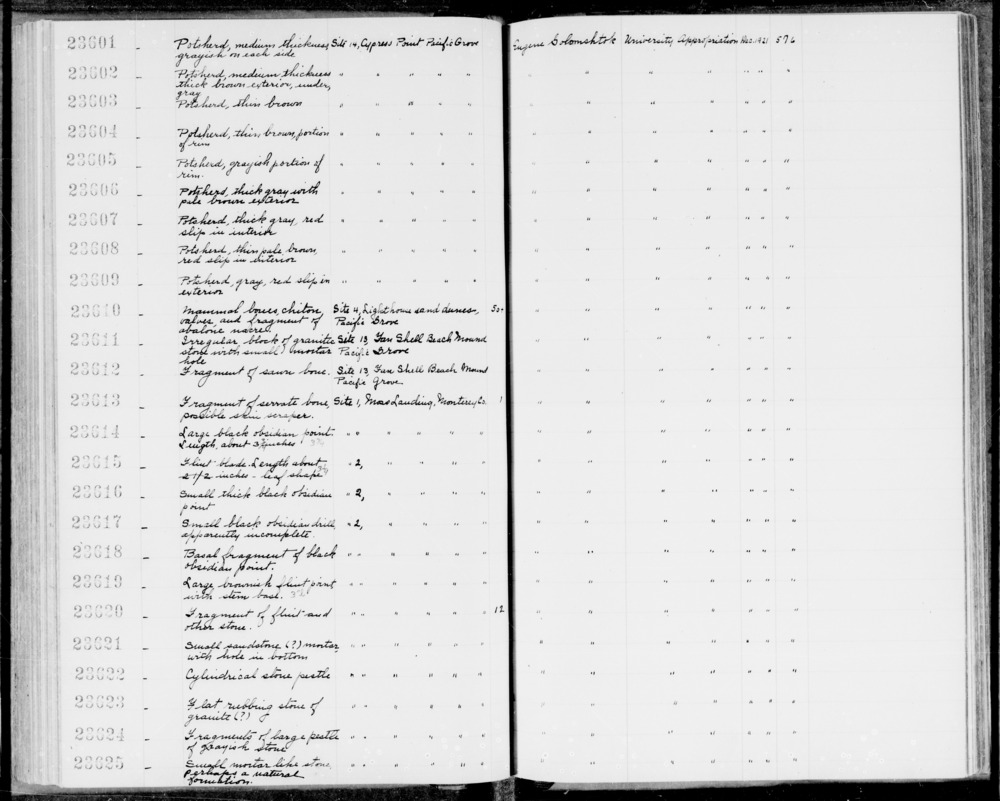 23601 - Potsherd, medium thickness Site 14, Cypress Point Pacific Grove Eugene Golomshtok University Appropriation Dec. 1921 576
grayish on each side
23602 - Potsherd, medium thickness " " " " " " " " " " " "
thick brown exterior, under,
gray
23603 - Potsherd, thin brown " " " " " " " " " " " "
23604 - Potsherd, thin brown, portion " " " " " " " " " " " "
of rim
23605 - Potsherd, grayish portion of " " " " " " " " " " " "
rim.
23606 - Potsherd, thick gray with " " " " " " " " " " " "
pale brown exterior
23607 - Potsherd, thick gray, red " " " " " " " " " " " "
slip in interior
23608 - Potsherd, thin pale brown, " " " " " " " " " " " "
red slip in exterior
23609 - Potsherd, gray, red slip in " " " " " " " " " " " "
exterior
23610 - Mammal bones, chiton, Site 4, Lighthouse sand dunes, " " " " " " "
valves and fragment of Pacific Grove
abalone nacre.
23611 - Irregular block of granitic Site 13, Fan Shell Beach Mound " " " " " " "
stone with small mortar Pacific Grove
hole
23612 - Fragment of sawn bone. Site 13, Fan Shell Beach Mound " " " " " " "
Pacific Grove
23613 - Fragment of serrate bone, Site 1, Moss Landing, Monterey Co. 1 " " " " " " "
possible skin scraper.
23614 - Large black obsidian point. " " " " " " " " " " " " "
Length, about 3 1/2 inches
23615 - Flint blade. Length about " 2, " " " " " " " " " " "
2 1/2 inches - leaf shape
23616 - Small thick black obsidian " 2, " " " " " " " " " " "
point
23617 - Small black obsidian drill " 2, " " " " " " " " " " "
apparently incomplete.
23618 - Basal fragment of black " " " " " " " " " " " " "
obsidian point.
23619 - Large brownish flint point " " " " " " " " " " " " "
with stem base.
23620 - Fragment of flint and " " " " " " 12 " " " " " " "
other stone.
23621 - Small sandstone (?) mortar " " " " " " " " " " " " "
with hole in bottom
23622 - Cylindrical stone pestle " " " " " " " " " " " " "
23623 - Flat rubbing stone of " " " " " " " " " " " " "
granite (?)
23624 - Fragments of large pestle " " " " " " " " " " " " "
of grayish stone
23625 - Small mortar like stone, " " " " " " " " " " " " "
perhaps a natural
formation.